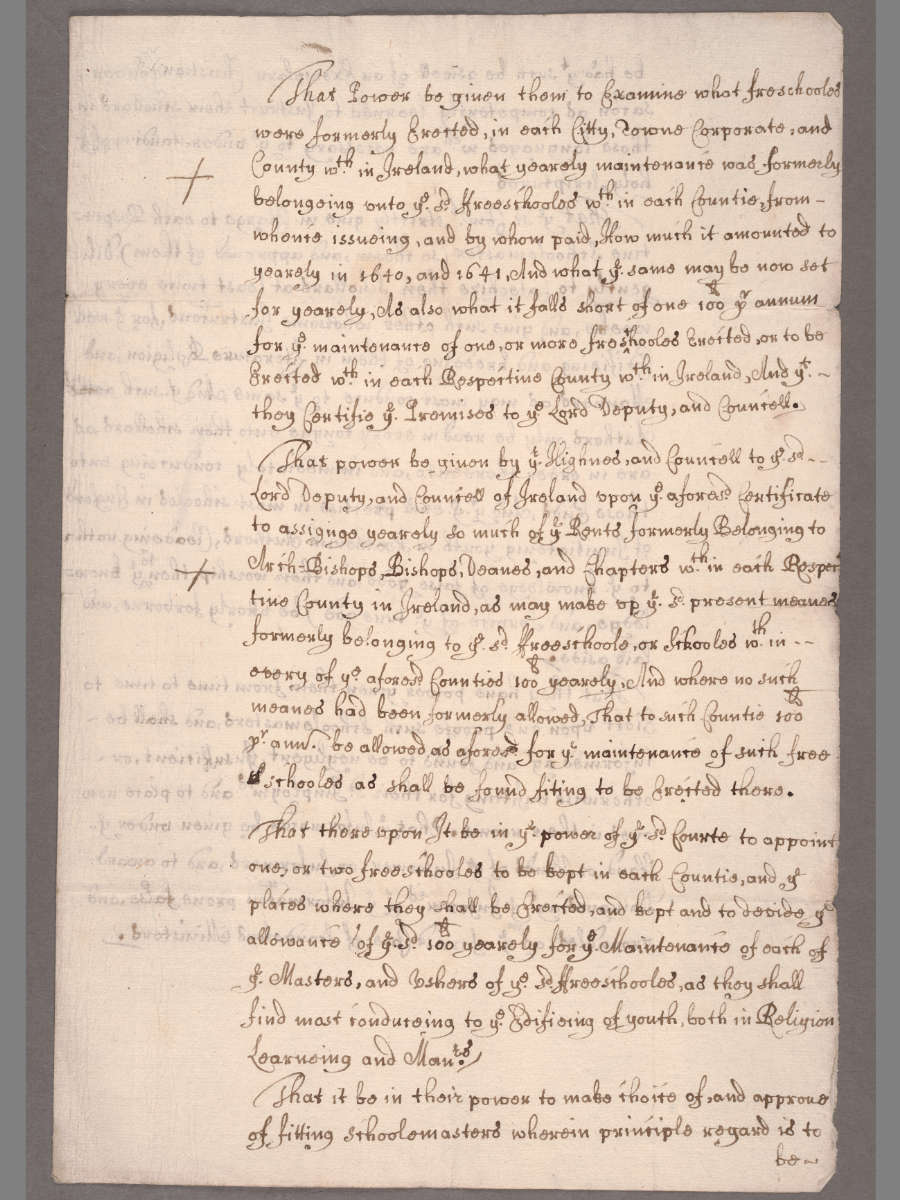 That Power be given them to Examine what freeschooles
were formerly Erected, in each Citty, Towne Corporate, and
County wth in Ireland, what yearely maintenance was formerly
belongeing vnto ye sd ffreeschooles wth in each Countie, from-
whence issueing, and by whom paid, How much it amounted to
yearely in 1640, and 1641, And what ye same may be now set
for yearely, As also what it falls short of one 100 pr annum
for ye maintenance of one, or more freeschooles Erected, or to be
Erected wth in each Respective County wth in Ireland, And yt -
they Certifie ye Premises to ye Lord Deputy, and Councell.
That power be given by yr Highnes, and Councell to ye sd --
Lord Deputy, and Councell of Ireland vpon ye aforesd Certificate
to assignge yearely so much of ye Rents formerly Belonging to
Arch-Bishops, Bishops, Deanes, and Chapters wth in each Respec
tiue County in Ireland, as may make vp ye sd present meanes
formerly belonging to ye sd ffreeschoole, or Schooles wth in --
every of ye aforesd Counties 100 yearely, And where no such
meanes had been formerly allowed, That to such Countie 100
pr ann. be allowed as aforesd for ye maintenance of such free
schooles as shall be found fiting to be Erected there.
That there vpon It be in ye power of ye sd Courte to appoint
one, or two freeschooles to be kept in each Countie, and ye
places where they shall be Erected, and kept and to decide ye
allowance of ye sd 100 yearely for ye Maintenance of each of
ye Masters, and Vshers of ye sd ffreeschooles, as they shall
find most conduceing to ye Edifieing of youth, both in Religion
Learneing and Manrs
That it be in their power to make choice of, and approue
of fitting Schoolemasters wherein principle regard is to
be-